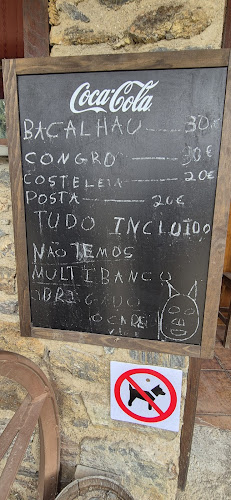 Coca-Cola
BACALHAU 30€
CONGRO 30€
COSTELETA 20€
POSTA 20€
TUDO INCLUIDO
NÃO TEMOS
MULTIBANCO
OBRIGADO